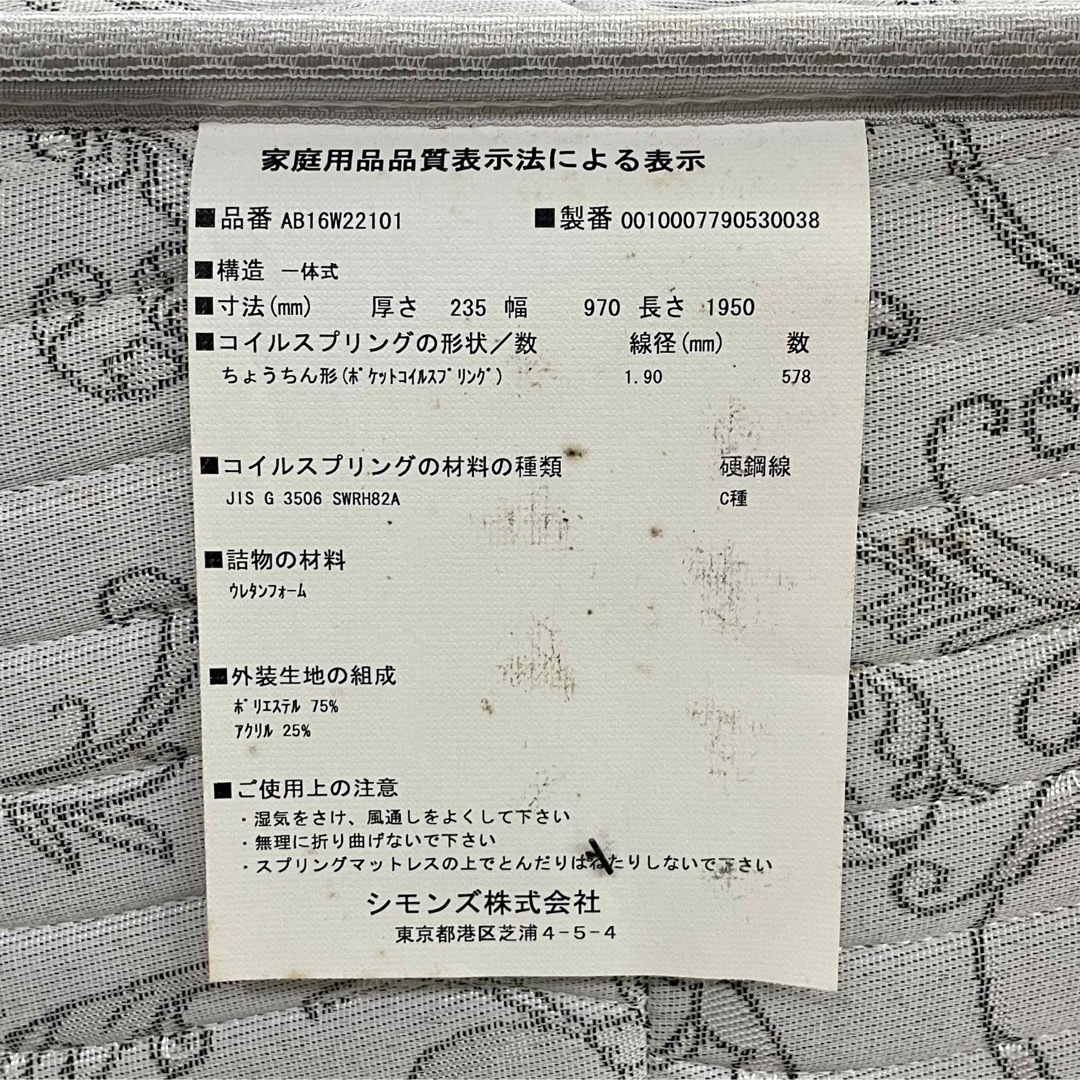 家庭用品品質表示法による表示
■品番 AB16W22101 ■製番 0010007790530038
■構造 一体式
■寸法(mm) 厚さ 235 幅 970 長さ 1950
■コイルスプリングの形状／数 線径(mm) 数
ちょうちん形(ﾎﾟｹｯﾄｺｲﾙｽﾌﾟﾘﾝｸﾞ) 1.90 578
■コイルスプリングの材料の種類 硬鋼線
JIS G 3506 SWRH82A C種
■詰物の材料
ｳﾚﾀﾝﾌｫｰﾑ
■外装生地の組成
ﾎﾟﾘｴｽﾃﾙ 75%
ｱｸﾘﾙ 25%
■ご使用上の注意
・湿気をさけ、風通しをよくして下さい
・無理に折り曲げないで下さい
・スプリングマットレスの上でとんだりはねたりしないで下さい
シモンズ株式会社
東京都港区芝浦４−５−４